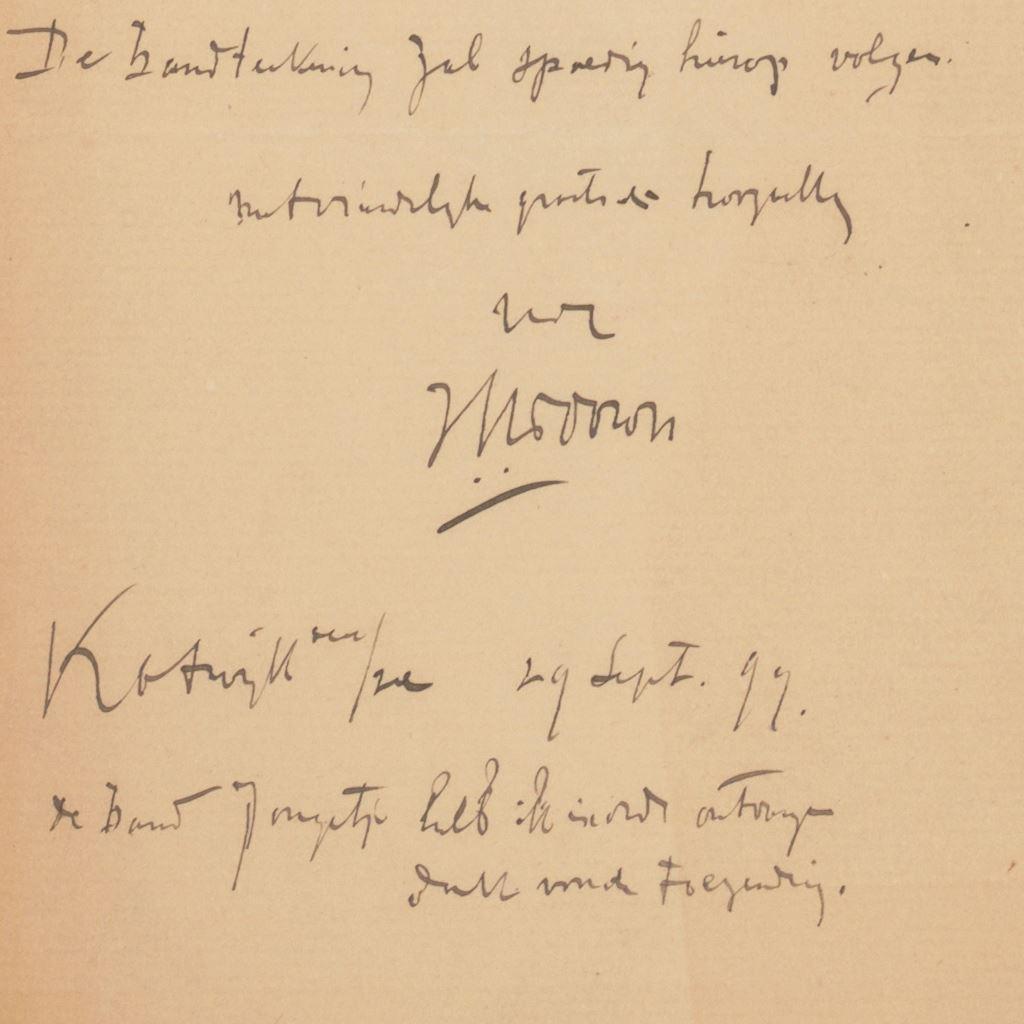 De bandteekening zal spoedig hierop volgen.
met vriendelijke groeten hoogachtg
Uw
JThToorop
Katwijk aan/zee 29 Sept. 99.
de band Jongetje heb ik in orde ontvangen
dank voor de toezending.